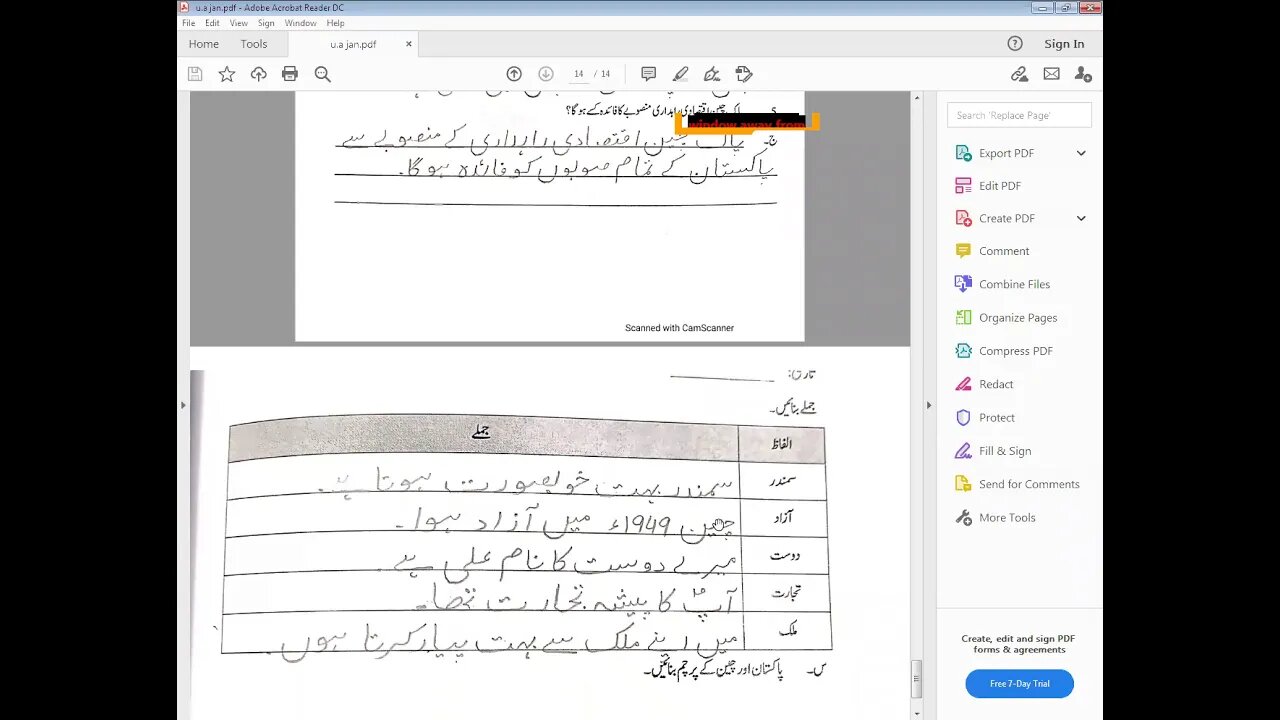 u.a jan.pdf - Adobe Acrobat Reader DC
File Edit View Sign Window Help
Home Tools u.a jan.pdf × Sign In
14 / 14
س۔ پاک چین اقتصادی راہداری منصوبے کا فائدہ کسے ہوگا؟
window away from
ج۔ پاک چین اقتصادی راہداری کے منصوبے سے
پاکستان کے تمام صوبوں کو فائدہ ہوگا۔
Scanned with CamScanner
تاریخ:
جملے بنائیں۔
الفاظ جملے
سمندر سمندر بہت خوبصورت ہوتا ہے۔
آزاد چین 1949ء میں آزاد ہوا۔
دوست میرے دوست کا نام علی ہے۔
تجارت آپؐ کا پیشہ تجارت تھا۔
ملک میں اپنے ملک سے بہت پیار کرتا ہوں۔
س۔ پاکستان اور چین کے پرچم بنائیں۔
Search 'Replace Page'
Export PDF
Edit PDF
Create PDF
Comment
Combine Files
Organize Pages
Compress PDF
Redact
Protect
Fill & Sign
Send for Comments
More Tools
Create, edit and sign PDF
forms & agreements
Free 7-Day Trial